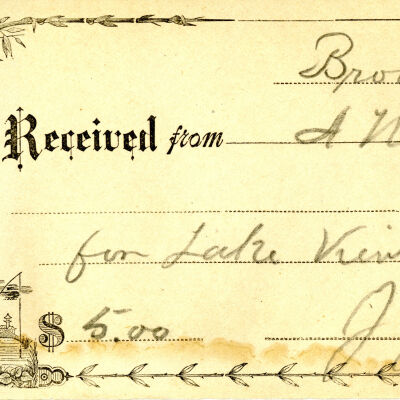 Bro
Received from A
for Lake View
$ 5.00
J